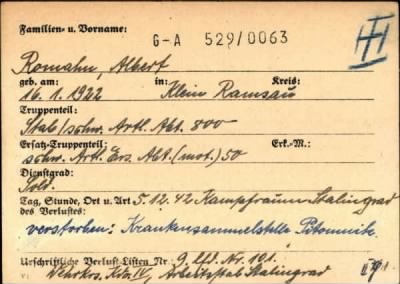 Familien- u. Vorname:
G-A 529/0063
Romahn, Albert
geb. am: in: Kreis:
16.1.1922 Klein Ramsau
Truppenteil:
Stab/schw. Artl. Abt. 800
Ersatz-Truppenteil: Erk.-M.:
schw. Artl. Ers. Abt. (mot.) 50
Dienstgrad:
Sold.
Tag, Stunde, Ort u. Art 5.12.42 Kampfraum Stalingrad
des Verlustes:
verstorben: Krankensammelstelle Pitomnik.
Urschriftliche Verlust-Listen Nr. 9. lfd. Nr. 101.
Wehrkrs. Kdo. IV, Arbeitsstab Stalingrad